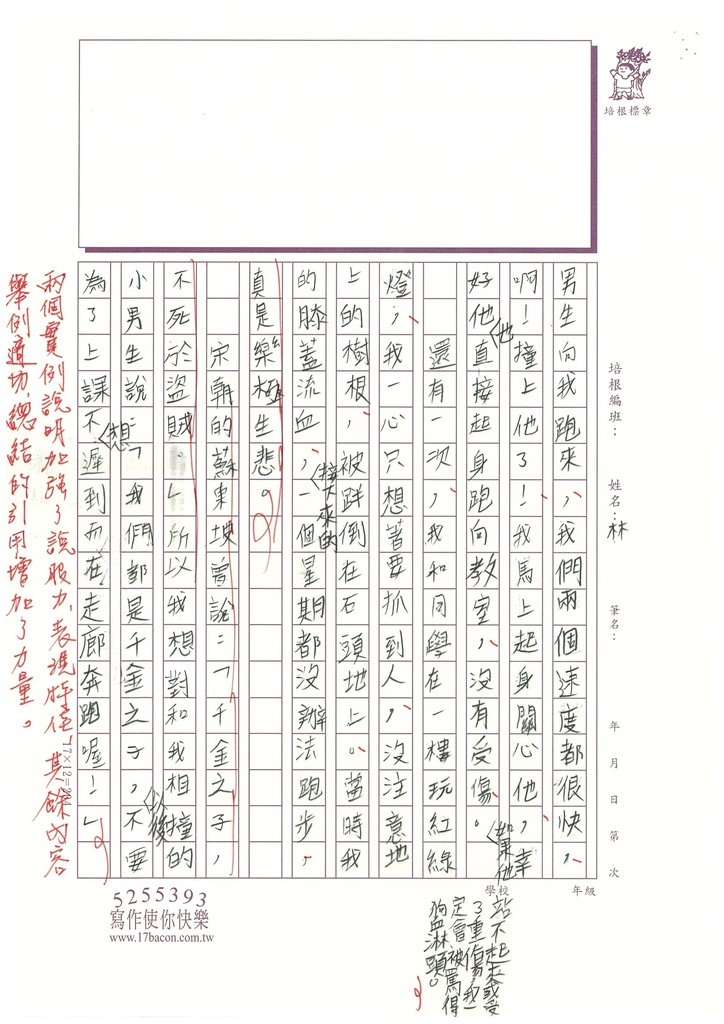 培根標章
培根編班：
姓名：林
筆名：
年 月 日 第 次
學校 年級
男生向我跑來，我們兩個速度都很快，
啊！撞上他了！我馬上起身關心他，幸
好他直接起身跑向教室，沒有受傷。
他
如果他
站不起來或受
了重傷，我一
定會被罵得
狗血淋頭。
還有一次，我和同學在一樓玩紅綠
燈，我一心只想著要抓到人，沒注意地
上的樹根，被跘倒在石頭地上。當時我
的膝蓋流血，一個星期都沒辦法跑步，
接下來的
真是樂極生悲。
宋朝的蘇東坡曾說：「千金之子，
不死於盜賊。」所以我想對和我相撞的
以後
小男生說：「我們都是千金之子，不要
想
為了上課不遲到而在走廊奔跑喔！」
兩個實例說明加強了說服力，表現好佳，其餘內容
舉例適切，總結的引用增加了力量。
5255393
寫作使你快樂
www.17bacon.com.tw